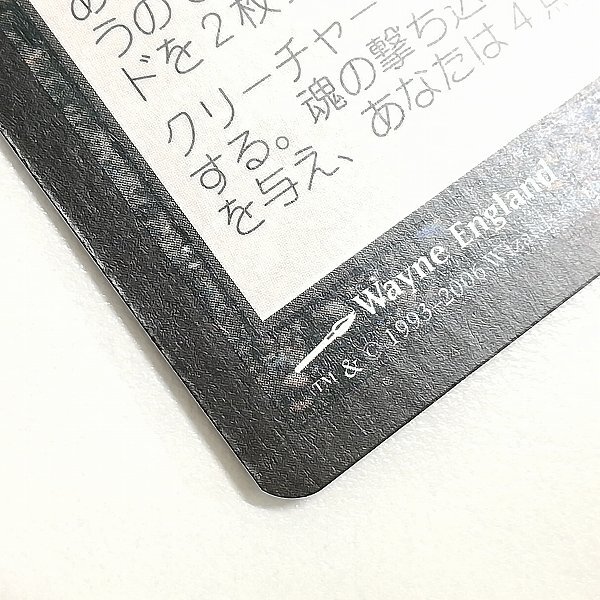 うの
ドを2枚
クリーチャー
する。魂の撃ち込
を与え、あなたは4点
Wayne England
™ & © 1993–2006 Wiz